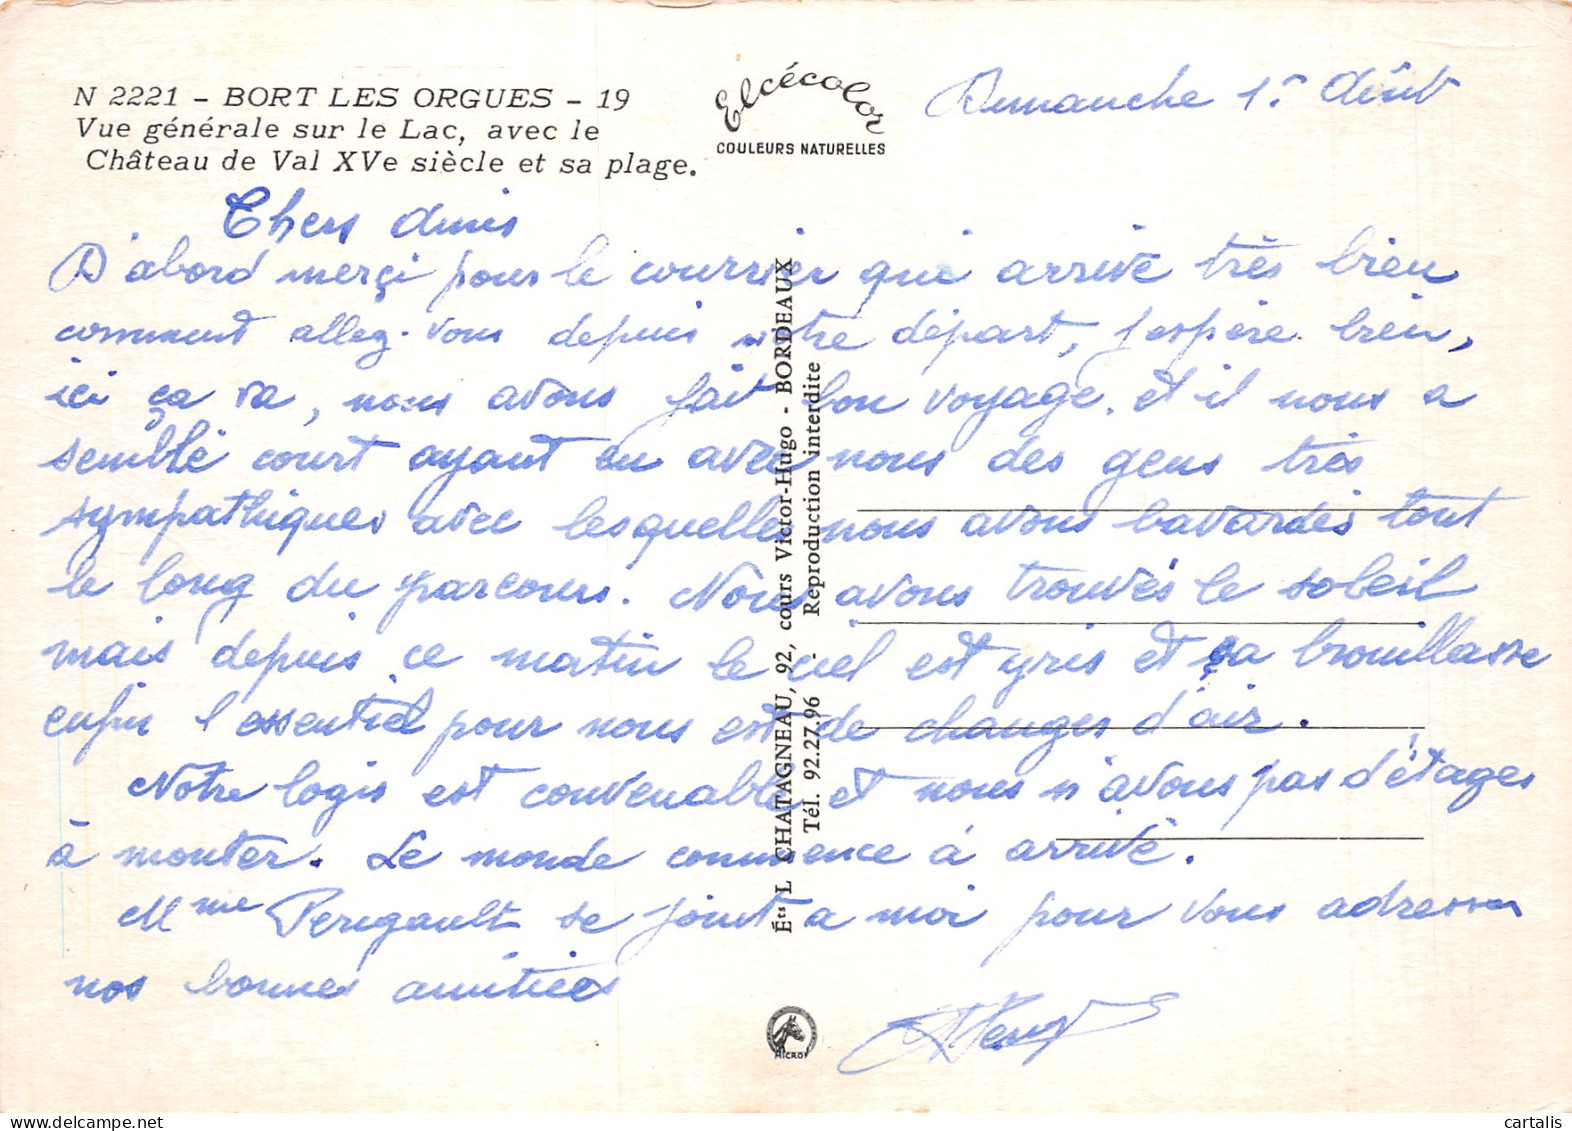 N 2221 - BORT LES ORGUES - 19
Vue générale sur le Lac, avec le
Château de Val XVe siècle et sa plage.
Elcécolor
COULEURS NATURELLES
Dimanche 1er Août
Chers Amis
D'abord merçi pour le courrier qui arrive très bien
comment allez-vous depuis notre départ, j'espère bien,
ici ça va, nous avons fait bon voyage. et il nous a
semblé court ayant eu avec nous des gens très
sympathiques avec lesquelles nous avons bavardés tout
le long du parcours. Nous avons trouvés le soleil
mais depuis ce matin le ciel est gris et ça brouillasse
enfin l'essentiel pour nous est de changes d'air.
Notre logis est convenable et nous n'avons pas d'étages
à monter. Le monde commence à arrivé.
Mme Perigault se joint a moi pour vous adresser
nos bonnes amitiées
Éts L CHATAGNEAU, 92, cours Victor-Hugo - BORDEAUX
Tél. 92.27.96 - Reproduction interdite
MICRO
cartalis